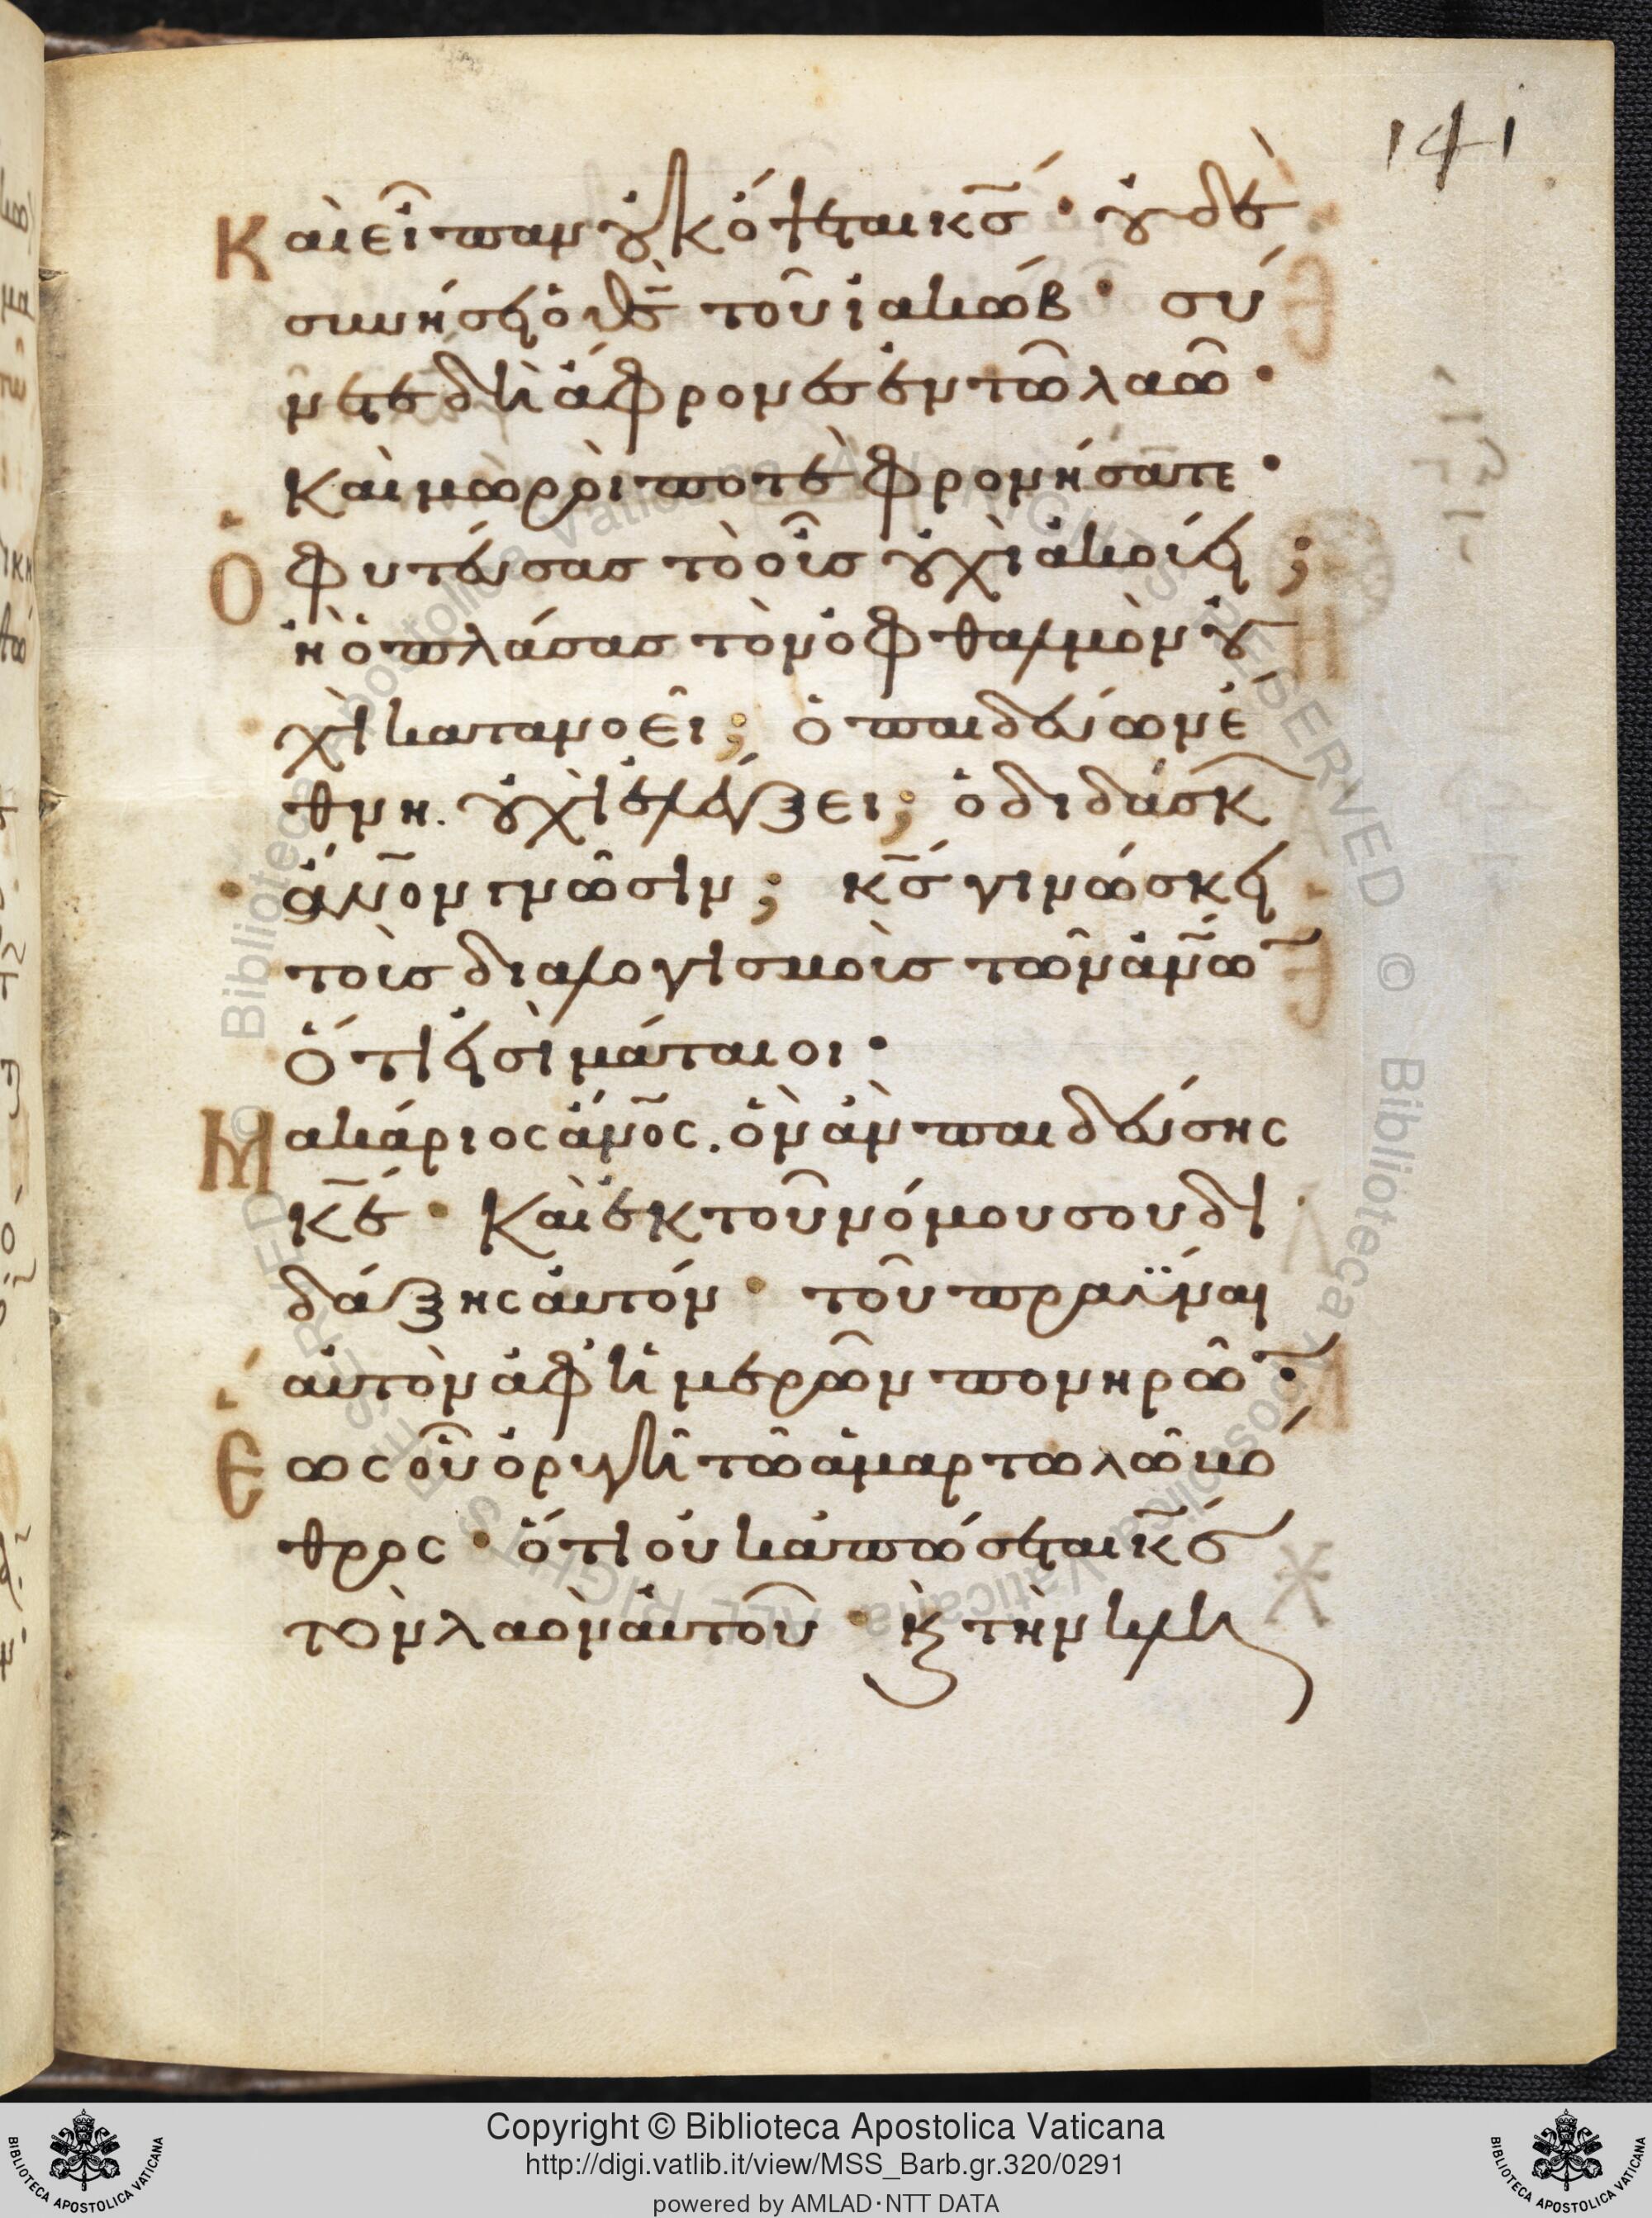 141
Καὶ εἶπαν οὐκ ὄψεται κ̅σ̅· οὐδὲ
συνήσει ὁ θ̅ς̅ τοῦ ἰακώβ· σύ
νετε δὴ ἄφρονες ἐν τῶ λαῶ·
καὶ μωροὶ ποτὲ φρονήσατε·
Ὁ φυτεύσας τὸ οὖς οὐχὶ ἀκούει;
ἢ ὁ πλάσας τὸν ὀφθαλμὸν οὐ
χὶ κατανοεῖ; ὁ παιδεύων ἔ
θνη. οὐχὶ ἐλέγξει; ὁ διδάσκ
ἄν̅ο̅ν γνῶσιν; κ̅σ̅ γινώσκει
τοὺς διαλογισμοὺς τῶν ἀν̅ω̅
ὅτι εἰσὶ μάταιοι·
Μακάριος ἄν̅ο̅ς. ὃν ἂν παιδεύσης
κ̅ε̅· καὶ ἐκ τοῦ νόμου σου δι
δάξης αὐτόν· τοῦ πραϋναι
αὐτὸν ἀφ ἡμερῶν πονηρῶ̅·
Ἕως οὗ ὀρυγῆ τῶ ἁμαρτωλῶ βό
θρος· ὅτι οὐκ ἀπώσεται κ̅σ̅
τὸν λαὸν αὐτοῦ· κ̀ τὴν κλη
Copyright © Biblioteca Apostolica Vaticana
http://digi.vatlib.it/view/MSS_Barb.gr.320/0291
powered by AMLAD·NTT DATA
BIBLIOTECA APOSTOLICA VATICANA
BIBLIOTECA APOSTOLICA VATICANA